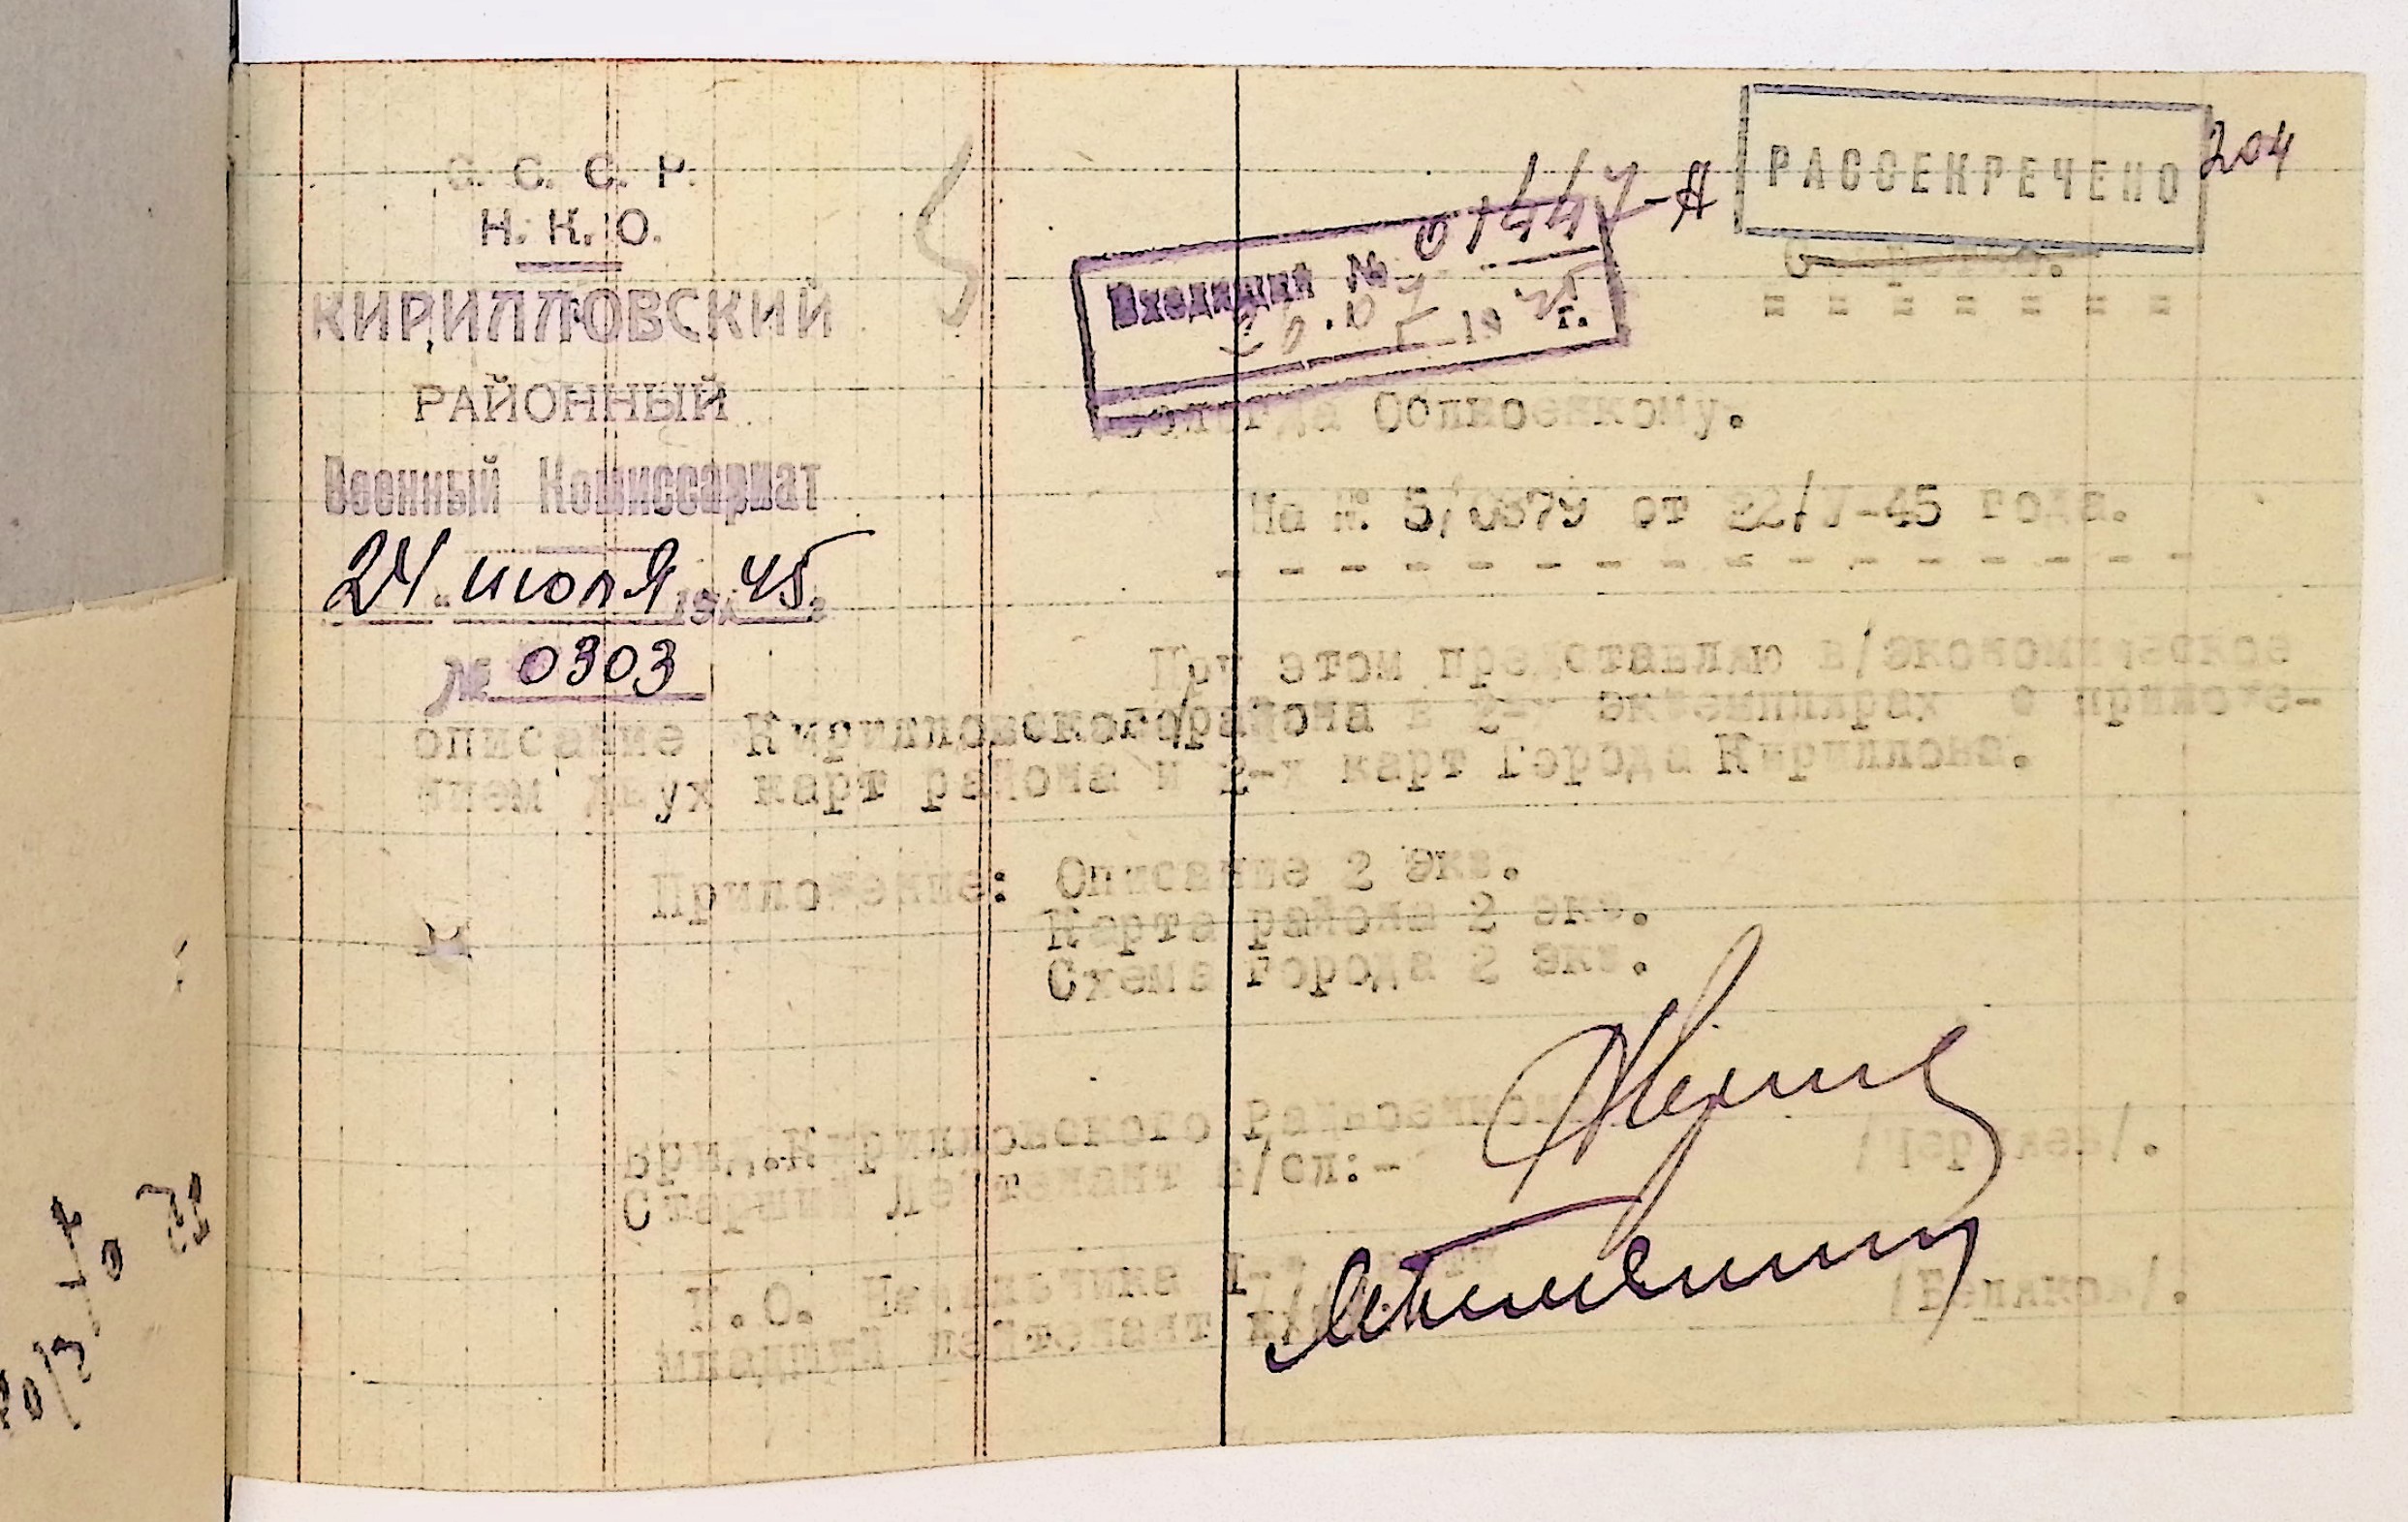 С. С. С. Р.
Н. К. О.
КИРИЛЛОВСКИЙ
РАЙОННЫЙ
Военный Комиссариат
24 июля 1945 г.
№ 0303
РАССЕКРЕЧЕНО
204
01447-А
Входящий №
19 45 г.
Вологда Облвоенкому.
На № 5/0379 от 22/7-45 года.
При этом представляю в/экономическое
описание Кировского/района в 2-х экземплярах с приложе-
нием двух карт района и 2-х карт города Кириллова.
Приложение: Описание 2 экз.
Карта района 2 экз.
Схема города 2 экз.
Врид.Кирилловского Райвоенкома
Старший Лейтенант а/сл:-
И. О. Начальника 1-й
младший лейтенант
/Беляков/.